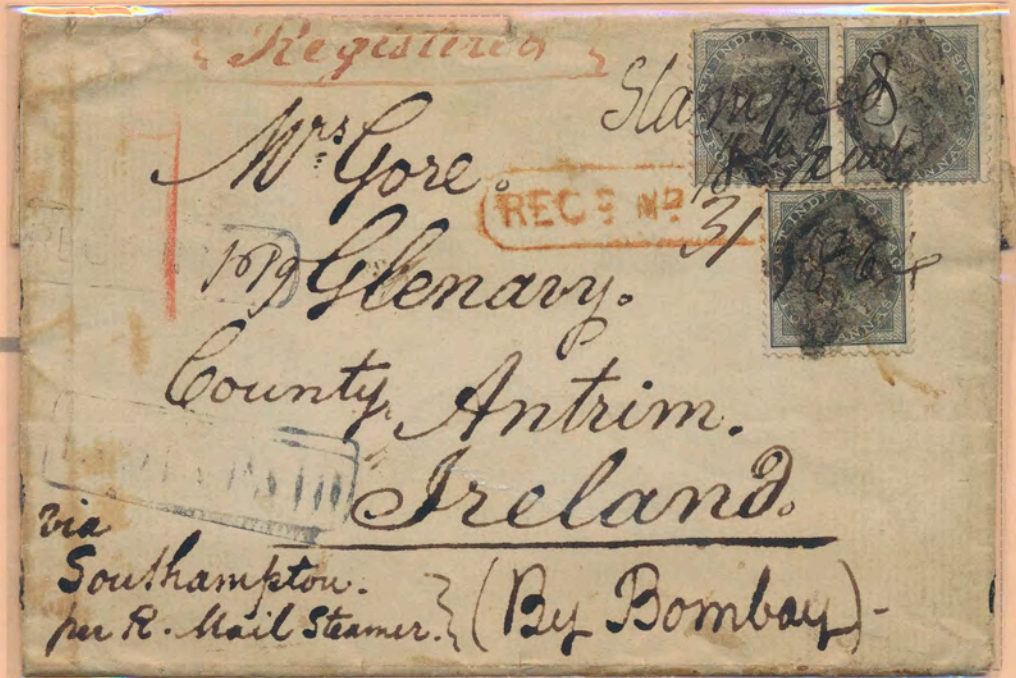 Registered
Stamped
Mrs Gore.
REGD No
31
1864
Glenavy.
County Antrim.
Ireland.
via
Southampton.
per R. Mail Steamer.
(By Bombay)-